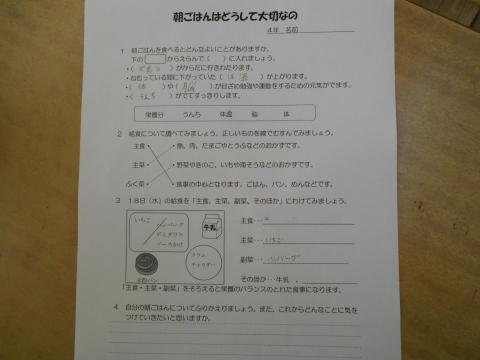 朝ごはんはどうして大切なの
4年 名前
1 朝ごはんを食べるとどんなよいことがありますか。
下の からえらんで（ ）に入れましょう。
・（ ）がからだに行きわたります。
・ねむっている間に下がっていた（体温）が上がります。
・（体）や（脳）が目ざめ勉強や運動をするための元気がでます。
・（うんち）がでてすっきりします。
栄養分 うんち 体温 脳 体
2 給食について調べてみましょう。正しいものを線でむすんでみましょう。
主食・ ・魚、肉、たまごやとうふなどのおかずです。
主菜・ ・野菜やきのこ、いもや海そうなどのおかずです。
ふく菜・ ・食事の中心となります。ごはん、パン、めんなどです。
3 18日（水）の給食を「主食、主菜、副菜、そのほか」にわけてみましょう。
いちご
ハンバーグ
デミグラス
ソースかけ
牛乳
クラム
チャウダー
パン
主食…
主菜…いちご
副菜…ハンバーグ
そのほか…牛乳、
「主食・主菜・副菜」をそろえると栄養のバランスのとれた食事になります。
4 自分の朝ごはんについてふりかえりましょう。また、これからどんなことに気を
つけていきたいと思いますか。